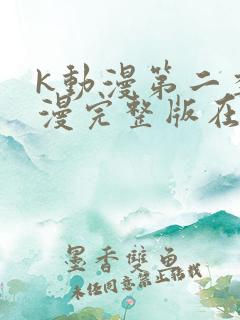 K動漫第二季
漫完整版在
墨香雙魚
未經同意禁止轉載